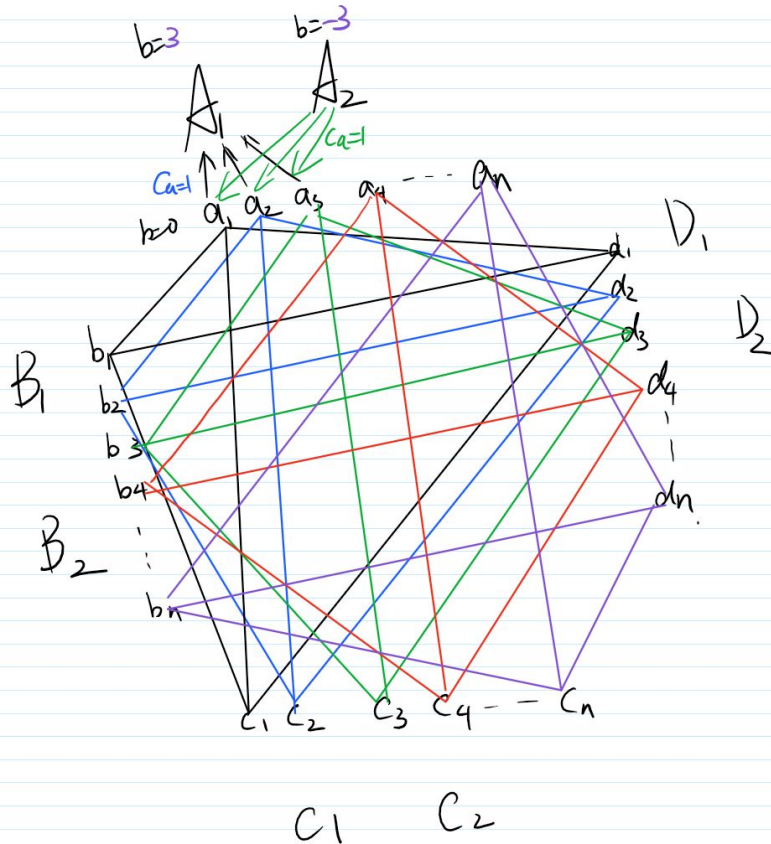 b=3
b=-3
A1
A2
Ca=1
Ca=1
a1 a2 a3 a4 --- an
b=0
D1
d1
d2
d3
d4
dn
D2
B1
b1
b2
b3
b4
bn
B2
C1 C2 C3 C4 --- Cn
C1 C2